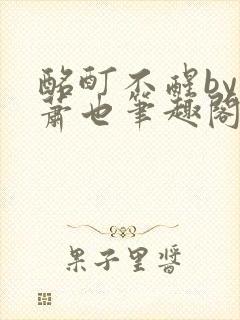 酩酊不醒by
萧也笔趣阁
果子里酱